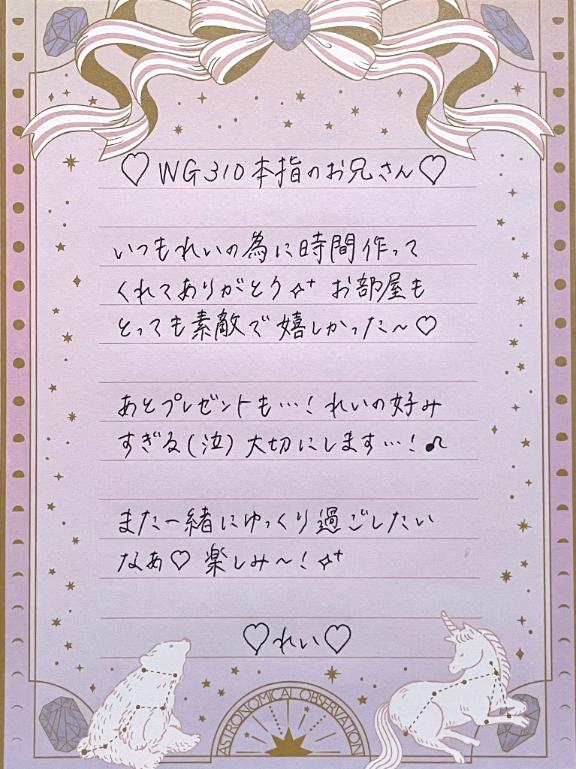 ♡WG310本指のお兄さん♡
いつもれいの為に時間作って
くれてありがとう✧⁺ お部屋も
とっても素敵で嬉しかった〜♡
あとプレゼントも…！れいの好み
すぎる(泣) 大切にします…！♫
また一緒にゆっくり過ごしたい
なあ♡ 楽しみ〜！✧⁺
♡れい♡
ASTRONOMICAL OBSERVATION